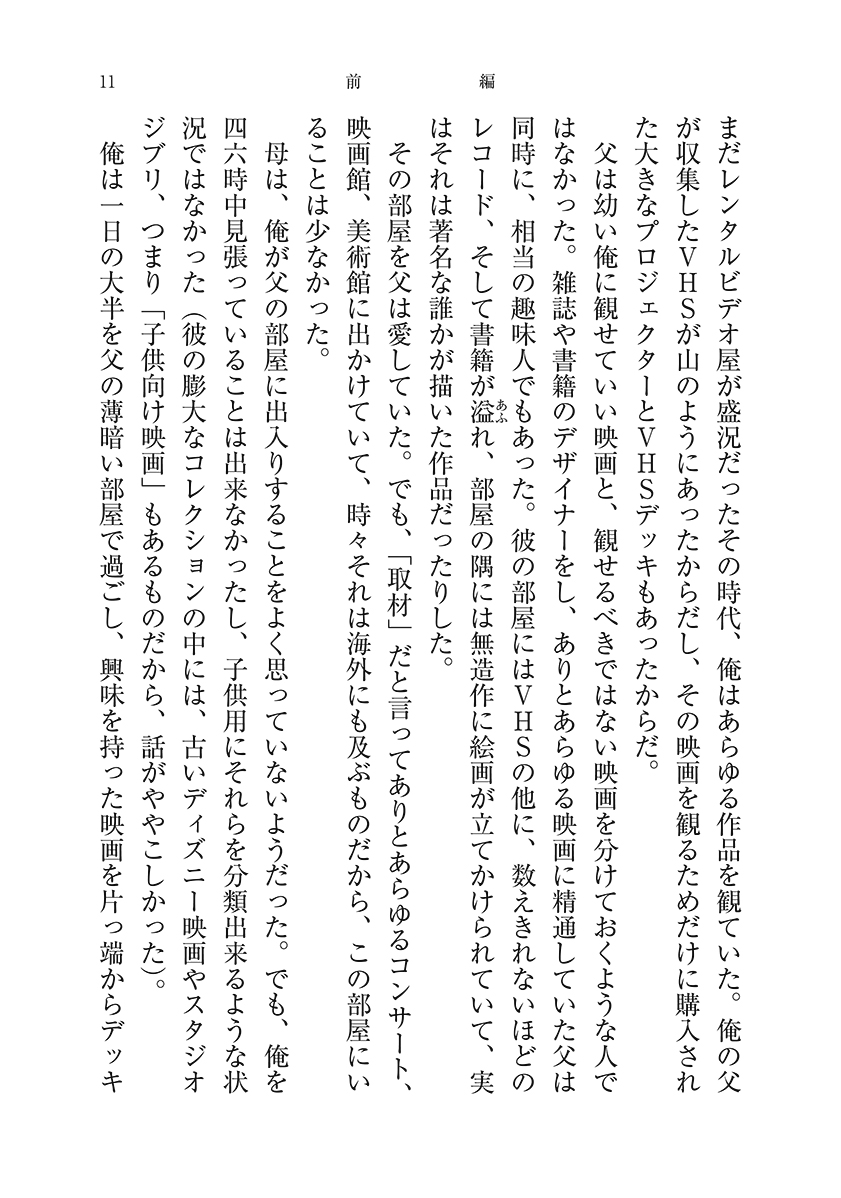 11
前編
まだレンタルビデオ屋が盛況だったその時代、俺はあらゆる作品を観ていた。俺の父
が収集したVHSが山のようにあったからだし、その映画を観るためだけに購入され
た大きなプロジェクターとVHSデッキもあったからだ。
父は幼い俺に観せていい映画と、観せるべきではない映画を分けておくような人で
はなかった。雑誌や書籍のデザイナーをし、ありとあらゆる映画に精通していた父は
同時に、相当の趣味人でもあった。彼の部屋にはVHSの他に、数えきれないほどの
レコード、そして書籍が溢あふれ、部屋の隅には無造作に絵画が立てかけられていて、実
はそれは著名な誰かが描いた作品だったりした。
その部屋を父は愛していた。でも、「取材」だと言ってありとあらゆるコンサート、
映画館、美術館に出かけていて、時々それは海外にも及ぶものだから、この部屋にい
ることは少なかった。
母は、俺が父の部屋に出入りすることをよく思っていないようだった。でも、俺を
四六時中見張っていることは出来なかったし、子供用にそれらを分類出来るような状
況ではなかった（彼の膨大なコレクションの中には、古いディズニー映画やスタジオ
ジブリ、つまり「子供向け映画」もあるものだから、話がややこしかった）。
俺は一日の大半を父の薄暗い部屋で過ごし、興味を持った映画を片っ端からデッキ